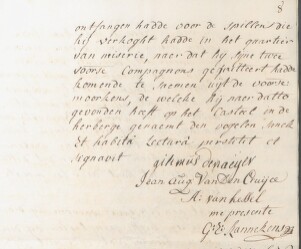 8
ontfangen hadde voor de spillen die
hij verkoght hadde in het quartier
van miserie, naer dat hij sijne twee
voors: Compagnons gequitteert hadde
komende te nemen uijt de voors:
moorkens, de welche hij naer datto
gevonden heeft op het Casteel in de
herberge genaemt den vogelen sanck
et habita lectura perstitit et
signavit
gilemus denaeyer
Jean Aug: VanDen Cruijce
A: van kessel
me presente
Lannekens